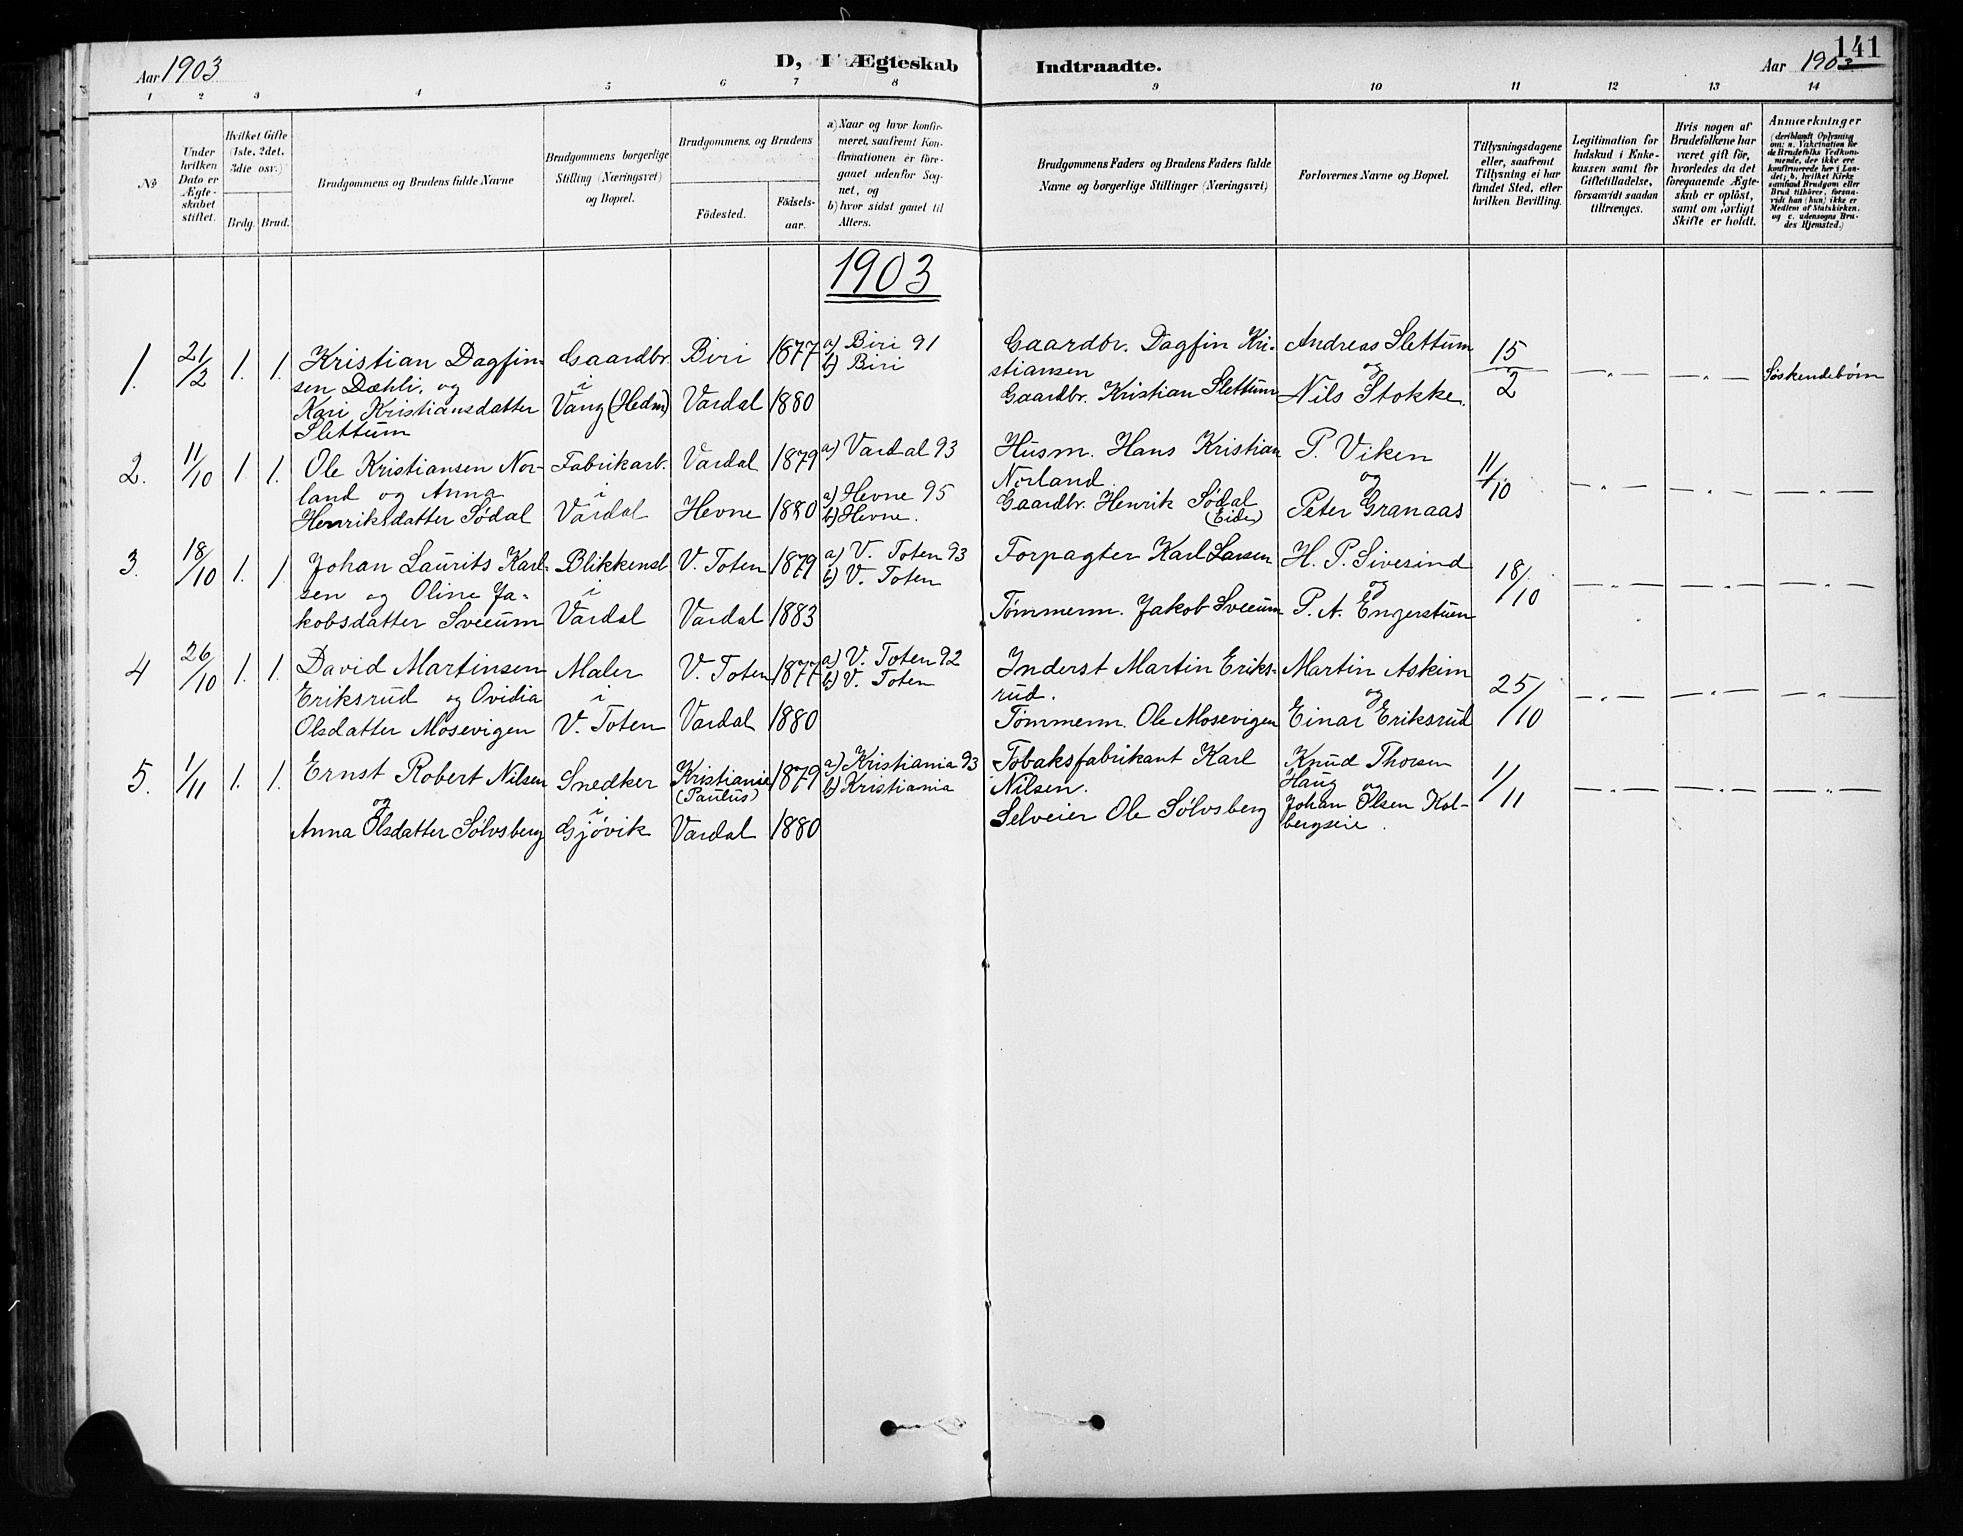 Aar 1903
D, I Ægteskab Indtraadte.
Aar 1903
141
1 2 3 4 5 6 7 8 9 10 11 12 13 14
No
Under
hvilken
Dato er
Ægte-
skabet
stiftet.
Hvilket Gifte
(1ste, 2det,
3die osv.)
Brdg. Brud.
Brudgommens og Brudens fulde Navne
Brudgommens borgerlige
Stilling (Næringsvei)
og Bopæl.
Brudgommens, og Brudens
Födested.
Födsels-
aar.
a) Naar og hvor konfir-
meret, saafremt Kon-
firmationen er fore-
gaaet udenfor Sog-
net, og
b) hvor sidst gaaet til
Alters.
Brudgommens Faders og Brudens Faders fulde
Navne og borgerlige Stillinger (Næringsvei)
Forlovernes Navne og Bopæl.
Tillysningsdagene
eller, saafremt
Tillysning ei har
fundet Sted, efter
hvilken Bevilling.
Legitimation for
Indskud i Enke-
kassen samt for
Giftetilladelse,
forsaavidt saadan
tiltrænges.
Hvis nogen af
Brudefolkene har
været gift för,
hvorledes da det
foregaaende Ægte-
skab er oplöst,
samt om lovligt
Skifte er holdt.
Anmærkninger
(deriblandt Oplysning
om: a. Vakcination for
de Brudefolks Vedkom-
mende, der ikke ere
konfirmerede her i Lan-
det; b. hvilket Kirke
samfund Brudgom eller
Brud tilhörer, forsaa-
vidt han (hun) ikke er
Medlem af Statskirken,
og c. udensogns Bru-
des Hjemsted.)
1903
1. 21/2 1. 1. Kristian Dagfin-
sen Dæhli, og
Kari Kristiansdatter
Slettum
Gaardbr.
i
Vang (Hedm)
Biri 1877
Vardal 1880
a) Biri 91
b) Biri
Gaardbr. Dagfin Kri-
stiansen
Gaardbr. Kristian Slettum
Andreas Slettum
og
Nils Stokke.
15/2
—„— —„— Søskendebørn
2. 11/10 1. 1. Ole Kristiansen Nor-
land og Anna
Henriksdatter Sødal
Fabrikarb.
i
Vardal
Vardal 1879
Hevne 1880
a) Vardal 93
a) Hevne 95
b) Hevne.
Husm. Hans Kristian
Norland.
Gaardbr. Henrik Sødal
(Eide)
P. Viken
og
Peter Granaas
11/10
—„— —„— —„—
3. 18/10 1. 1. Johan Laurits Karl-
sen og Oline Ja-
kobsdatter Sveeum
Blikkensl.
i
Vardal
V. Toten 1879
Vardal 1883
a) V. Toten 93
b) V. Toten
Forpagter Karl Larsen
Tømmerm. Jakob Sveeum
H. P. Sivesind
og
P. A. Engerstuen
18/10
—„— —„— —„—
4 26/10 1. 1. David Martinsen
Eriksrud og Ovidia
Olsdatter Mosevigen
Maler
i
V. Toten
V. Toten 1877
Vardal 1880
a) V. Toten 92
b) V. Toten
Inderst Martin Eriks-
rud.
Tømmerm. Ole Mosevigen
Martin Askim
og
Einar Eriksrud
25/10
—„— —„— —„—
5. 1/11 1. 1. Ernst Robert Nilsen
og
Anna Olsdatter Sølvsberg
Snedker
i
Gjøvik
Kristiania
(Paulus)
1879
Vardal 1880
a) Kristiania 93
b) Kristiania
Tobaksfabrikant Karl
Nilsen.
Selveier Ole Sølvsberg
Knud Thorsen
Haug
og
Johan Olsen Kol-
bergseie.
1/11
—„— —„— —„—